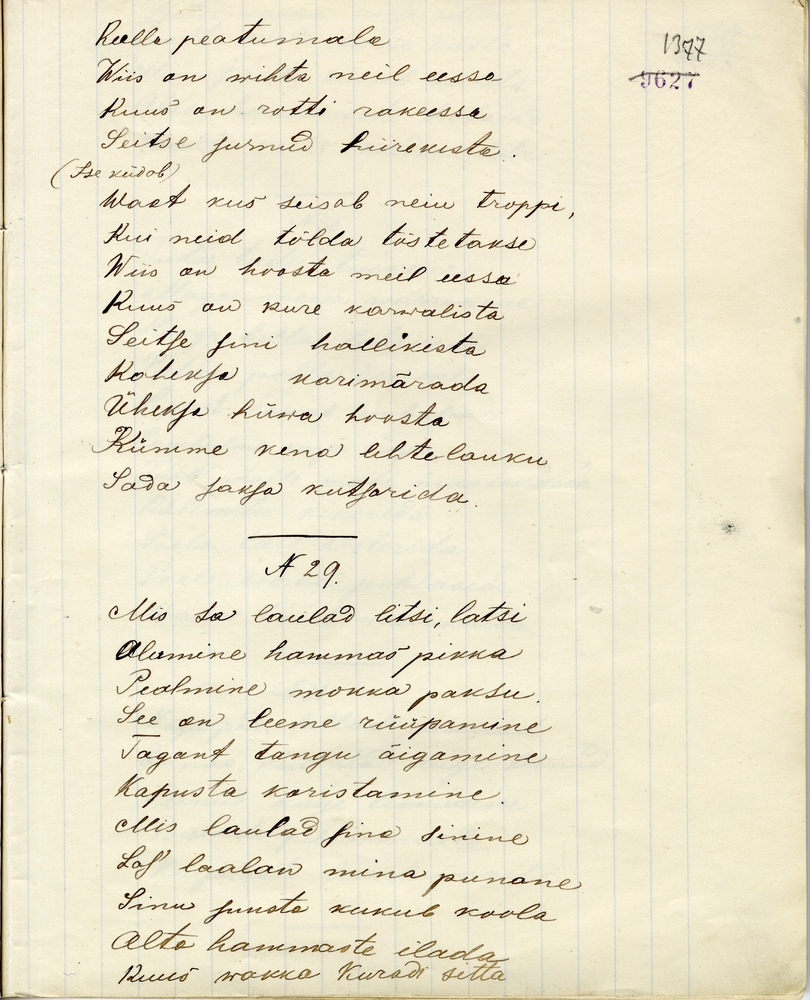 1377
9627
Kella peatumala
Wiis on wihta neil eessa
Kuus on rotti rakeessa
Seitse surnud hiirekesta.
(Ise kiidab)
Waat kus seisab neiu troppi,
Kui neid tõlda tõstetakse
Wiis on hoosta meil eessa
Kuus on kure karwalista
Seitse sini hallikista
Kaheksa karimärada
Üheksa hüwa hoosta
Kümme kena lehtelauku
Sada saksa kutsarida.
N 29.
Mis sa laulad litsi, latsi
Alumine hammas pikka
Pealmine mokka paksu.
See on leeme rüüpamine
Tagant tangu äigamine
Kapusta koristamine.
Mis laulad sina sinine
Las' laalan mina punane
Sinu suusta kukub koola
Alta hammaste ilada
Kuus wakka Kuradi sitta